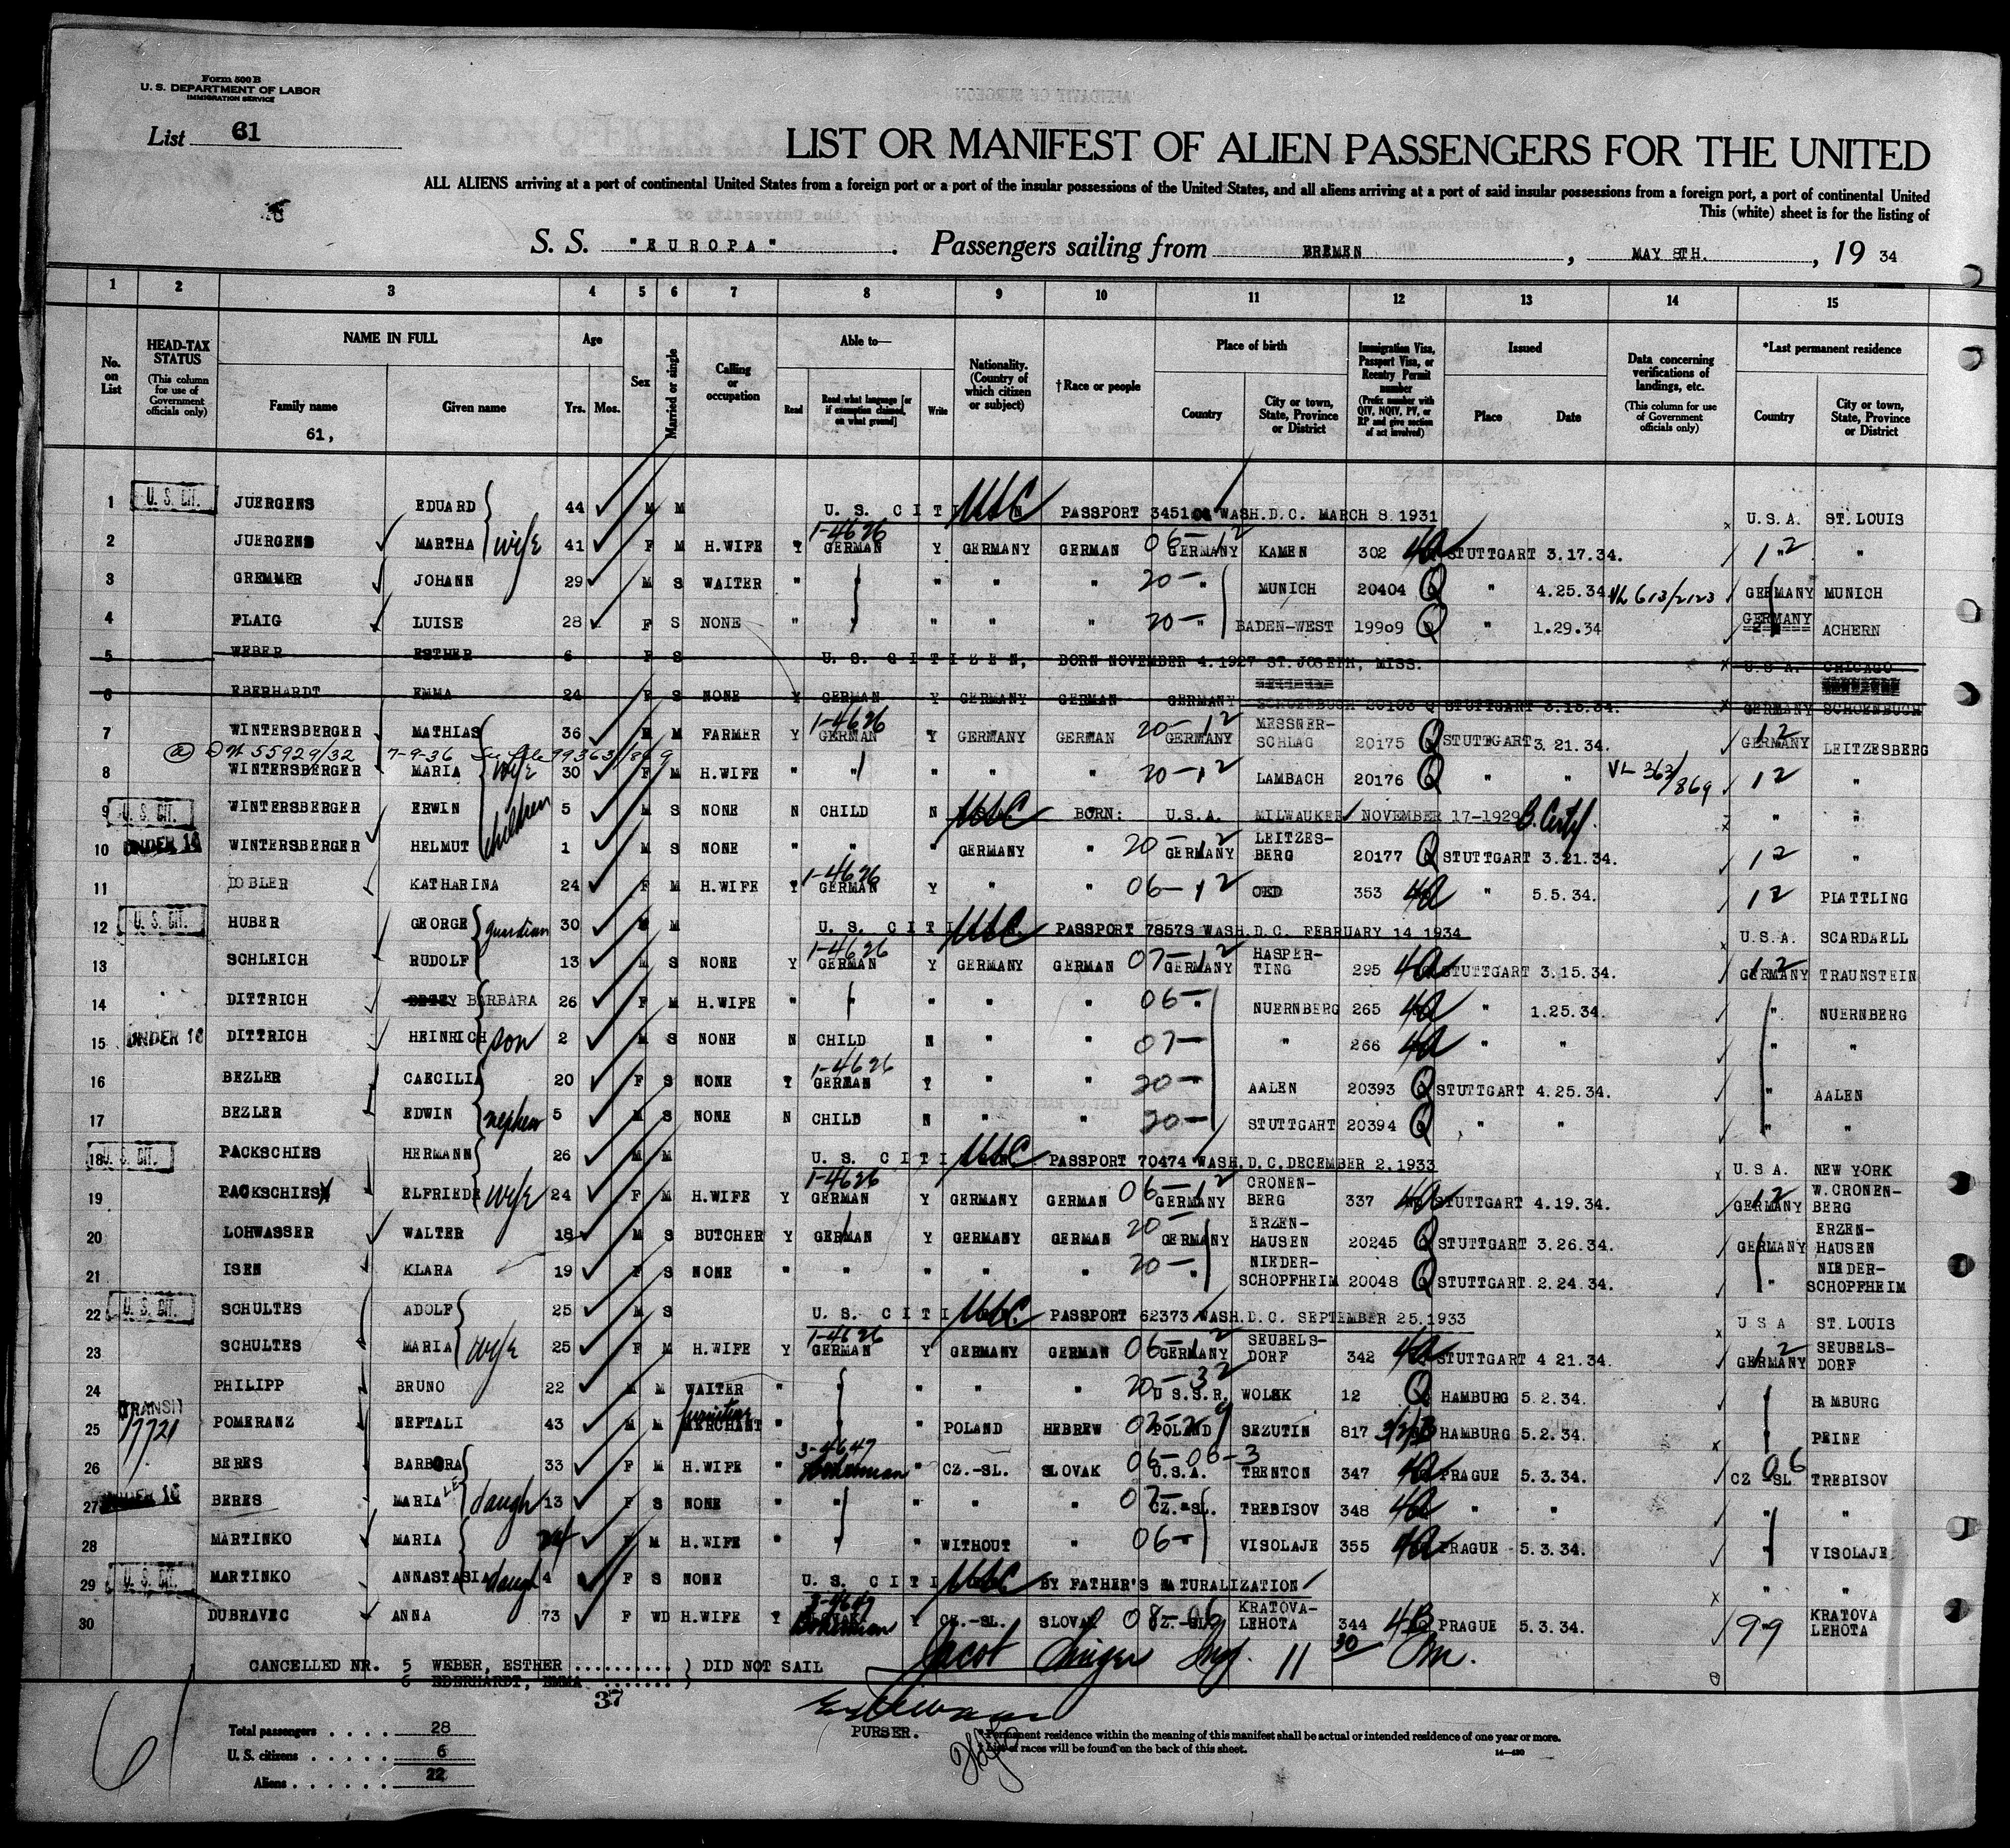 Form 500 B
U. S. DEPARTMENT OF LABOR
IMMIGRATION SERVICE
List 61
LIST OR MANIFEST OF ALIEN PASSENGERS FOR THE UNITED
ALL ALIENS arriving at a port of continental United States from a foreign port or a port of the insular possessions of the United States, and all aliens arriving at a port of said insular possessions from a foreign port, a port of continental United
This (white) sheet is for the listing of
S. S. "EUROPA". Passengers sailing from BREMEN, MAY 8TH., 19 34
1 2 3 4 5 6 7 8 9 10 11 12 13 14 15
No. on List
HEAD-TAX STATUS (This column for use of Government officials only)
NAME IN FULL
Family name 61,
Given name
Age Yrs. Mos.
Sex
Married or single
Calling or occupation
Able to—
Read
Read what language [or if exemption claimed, on what ground]
Write
Nationality. (Country of which citizen or subject)
†Race or people
Place of birth
Country
City or town, State, Province or District
Immigration Visa, Passport Visa, or Reentry Permit number (Prefix number with QIV, NQIV, PV, or RP and give section of act involved)
Issued
Place
Date
Data concerning verifications of landings, etc. (This column for use of Government officials only)
*Last permanent residence
Country
City or town, State, Province or District
1 U. S. CIT. JUERGENS EDUARD 44 M M U. S. CITI USC PASSPORT 3451 WASH.D.C. MARCH 8 1931 U.S.A. ST. LOUIS
2 JUERGENS MARTHA wife 41 F M H.WIFE Y 1-4626 GERMAN Y GERMANY GERMAN 06-12 GERMANY KAMEN 302 4a STUTTGART 3.17.34. 12 "
3 GREMMER JOHANN 29 M S WAITER " " " " 20- " MUNICH 20404 Q " 4.25.34 VL 613/2123 GERMANY MUNICH
4 FLAIG LUISE 28 F S NONE " " " " 20- " BADEN-WEST 19909 Q " 1.29.34 GERMANY ACHERN
5 WEBER ESTHER 6 F S U. S. CITIZEN, BORN NOVEMBER 4.1927 ST. JOSEPH, MISS. U.S.A. CHICAGO
6 EBERHARDT EMMA 24 F S NONE Y GERMAN Y GERMANY GERMAN GERMANY SCHOENBUCH 20103 Q STUTTGART 3.15.34. GERMANY SCHOENBUCH
7 WINTERSBERGER MATHIAS 36 M M FARMER Y 1-4626 GERMAN Y GERMANY GERMAN 20-12 GERMANY MESSNER-SCHLAG 20175 Q STUTTGART 3.21.34. 12 GERMANY LEITZESBERG
55929/32 7-9-36 See file 99363/869
8 WINTERSBERGER MARIA wife 30 F M H.WIFE " " " " " 20-12 LAMBACH 20176 Q " " VL 363/869 12 "
9 U. S. CIT. WINTERSBERGER ERWIN children 5 M S NONE N CHILD N USC BORN: U.S.A. MILWAUKEE NOVEMBER 17-1929 B. Certif. " "
10 UNDER 16 WINTERSBERGER HELMUT 1 M S NONE " " " GERMANY " 20-12 GERMANY LEITZES-BERG 20177 Q STUTTGART 3.21.34. 12 "
11 DOBLER KATHARINA 24 F M H.WIFE Y 1-4626 GERMAN Y " " 06-12 OED 353 4a " 5.5.34. 12 PLATTLING
12 U. S. CIT. HUBER GEORGE guardian 30 M U. S. CITI USC PASSPORT 78573 WASH.D.C. FEBRUARY 14 1934 U.S.A. SCARDAELL
13 SCHLEICH RUDOLF 13 M S NONE Y 1-4626 GERMAN Y GERMANY GERMAN 07-12 GERMANY HASPER-TING 295 4a STUTTGART 3.15.34. 12 GERMANY TRAUNSTEIN
14 DITTRICH BARBARA 26 F M H.WIFE " " " " 06- " NUERNBERG 265 4a " 1.25.34. " NUERNBERG
15 UNDER 16 DITTRICH HEINRICH son 2 M S NONE N CHILD N " " 07- " 266 4a " " " "
16 BEZLER CAECILIA 20 F S NONE Y 1-4626 GERMAN Y " " 20- AALEN 20393 Q STUTTGART 4.25.34. " AALEN
17 BEZLER EDWIN nephew 5 M S NONE N CHILD N " " 20- STUTTGART 20394 Q " " " "
18 U. S. CIT. PACKSCHIES HERMANN 26 M M U. S. CITI USC PASSPORT 70474 WASH.D.C.DECEMBER 2.1933 U.S.A. NEW YORK
19 PACKSCHIES ELFRIEDE wife 24 F M H.WIFE Y 1-4626 GERMAN Y GERMANY GERMAN 06-12 GERMANY CRONEN-BERG 337 4a STUTTGART 4.19.34. 12 GERMANY W.CRONEN-BERG
20 LOHWASSER WALTER 18 M S BUTCHER Y GERMAN Y GERMANY GERMAN 20- GERMANY ERZEN-HAUSEN 20245 Q STUTTGART 3.26.34. GERMANY ERZEN-HAUSEN
21 ISEN KLARA 19 F S NONE " " " " " 20- " NIEDER-SCHOPFHEIM 20048 Q STUTTGART 2.24.34. " NIEDER-SCHOPFHEIM
22 U. S. CIT. SCHULTES ADOLF 25 M S U. S. CITI USC PASSPORT 62373 WASH.D.C. SEPTEMBER 25.1933 U S A ST. LOUIS
23 SCHULTES MARIA wife 25 F M H.WIFE Y 1-4626 GERMAN Y GERMANY GERMAN 06-12 GERMANY SEUBELS-DORF 342 4a STUTTGART 4 21.34. 12 GERMANY SEUBELS-DORF
24 PHILIPP BRUNO 22 M M WAITER " " " " 20-32 U S.S.R. WOLSK 12 Q HAMBURG 5.2.34. HAMBURG
25 TRANSIT 17721 POMERANZ NEFTALI 43 M M furniture MERCHANT " " POLAND HEBREW POLAND SEZUTIN 817 HAMBURG 5.2.34. PEINE
26 BERES BARBORA 33 F M H.WIFE " 3-4649 Bohemian " CZ.-SL. SLOVAK 06-06-3 U.S.A. TRENTON 347 4a PRAGUE 5.3.34. 06 CZ SL TREBISOV
27 UNDER 16 BERES MARIA daugh 13 F S NONE " " " " " 07- CZ.-SL. TREBISOV 348 4a " " " "
28 MARTINKO MARIA 24 F M H.WIFE " " WITHOUT " 06- VISOLAJE 355 4a PRAGUE 5.3.34. " VISOLAJE
29 U. S. CIT. MARTINKO ANNASTASIA daugh 4 F S NONE U. S. CITI USC BY FATHER'S NATURALIZATION " "
30 DUBRAVEC ANNA 73 F WD H.WIFE Y 3-4649 Bohemian Y CZ.-SL. SLOVAK 08-06 CZ.-SL. KRATOVA-LEHOTA 344 4B PRAGUE 5.3.34. 99 KRATOVA LEHOTA
Jacob Singer Insp. 11 30
CANCELLED NR. 5 WEBER, ESTHER .......... ) DID NOT SAIL
6 EBERHARDT, EMMA ....... )
37
61
PURSER.
Total passengers . . . . 28
U. S. citizens . . . . . 6
Aliens . . . . . . 22
*Permanent residence within the meaning of this manifest shall be actual or intended residence of one year or more.
†List of races will be found on the back of this sheet.
14—430